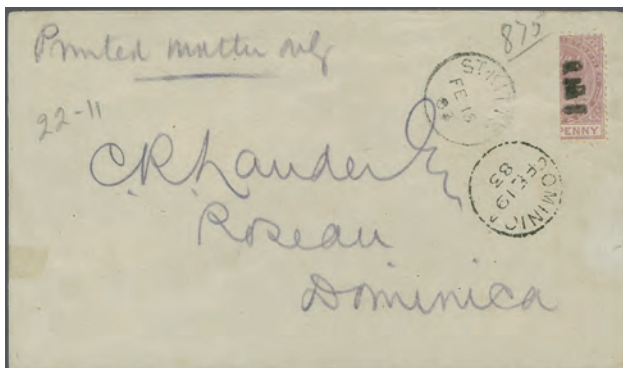 Printed matter only
875
22-11
ST. KITTS
FE 15
83
PENNY
DOMINICA
FE 19
83
C.R. Lander Esq
Roseau
Dominica